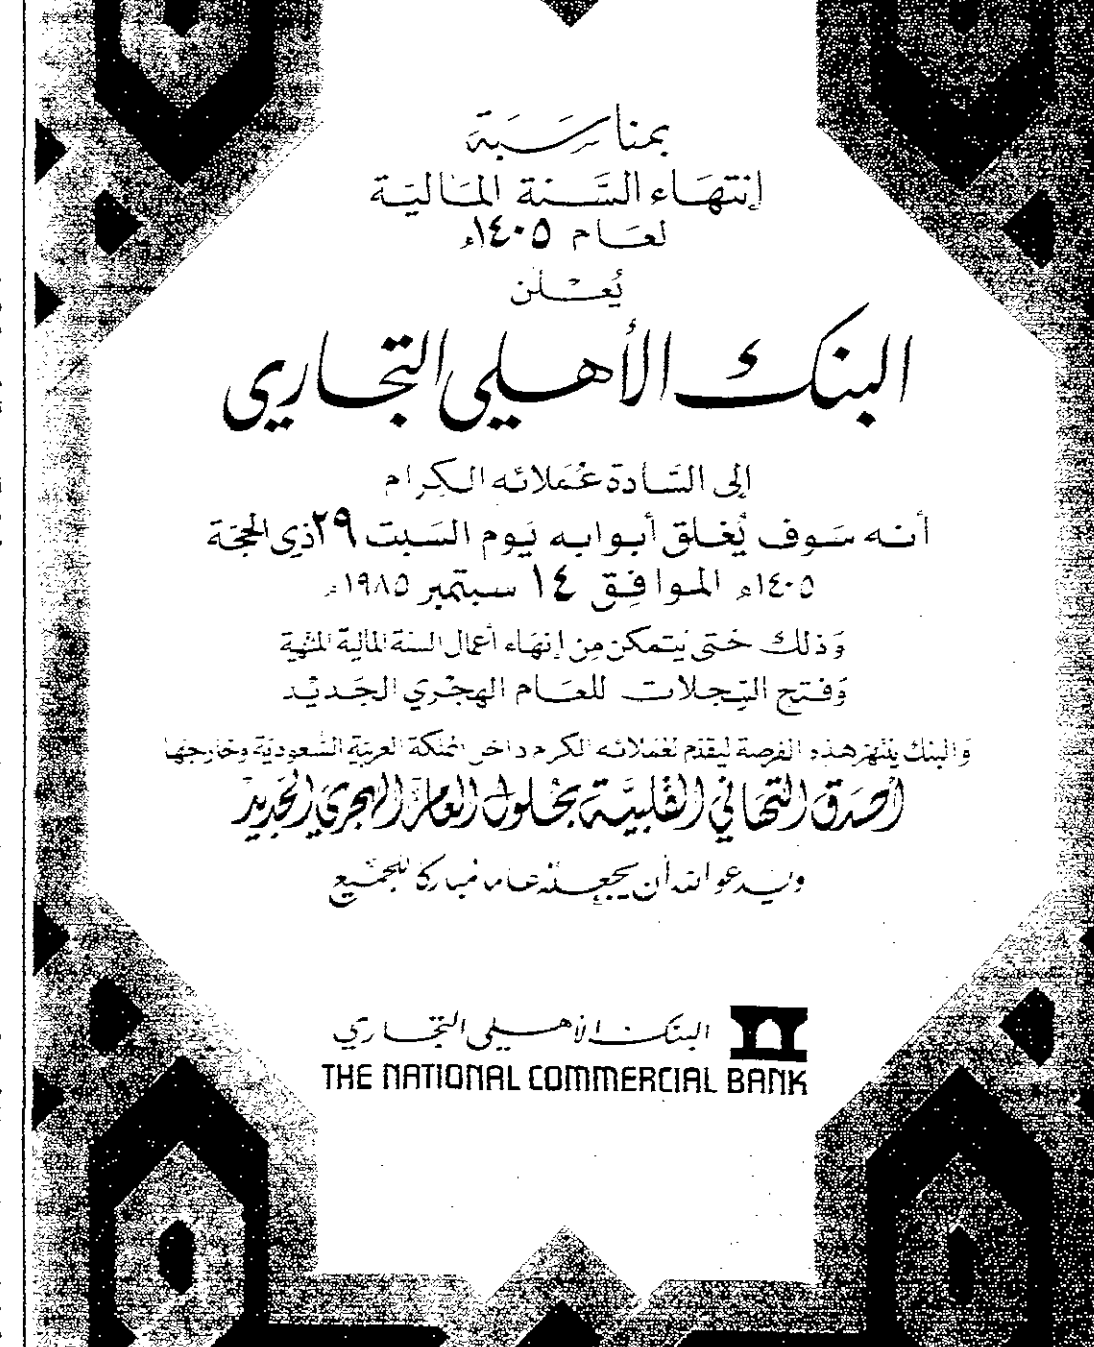 بمناسَبَة
إنتهَاء السَّنة المَاليَة
لعَام ١٤٠٥هـ
يُعْلن
البنك الأهلي التجاري
إلى السَّادة عُمَلائه الكِرام
أنه سَوف يُغلق أبوابه يَوم السَبت ٢٩ ذِي الحجَة
١٤٠٥هـ الموافِق ١٤ سبتمبر ١٩٨٥م
وَذلك حَتى يَتمكن مِن إنهَاء أعمَال السنة المالية المنتهية
وَفتح السِّجلات للعَام الهجْري الجَديْد
وَالبنك ينتهز هذه الفرصة ليقدم لعُمَلائه الكرام داخل المملكة العربيَة السُّعوديَة وخارجهَا
أصدَق التهَاني القلبيَّة بحُلول العام الهجري الجَديد
ويدعو الله أن يجعله عاما مُباركا للجميْع
البنك الأهلي التجَاري
THE NATIONAL COMMERCIAL BANK